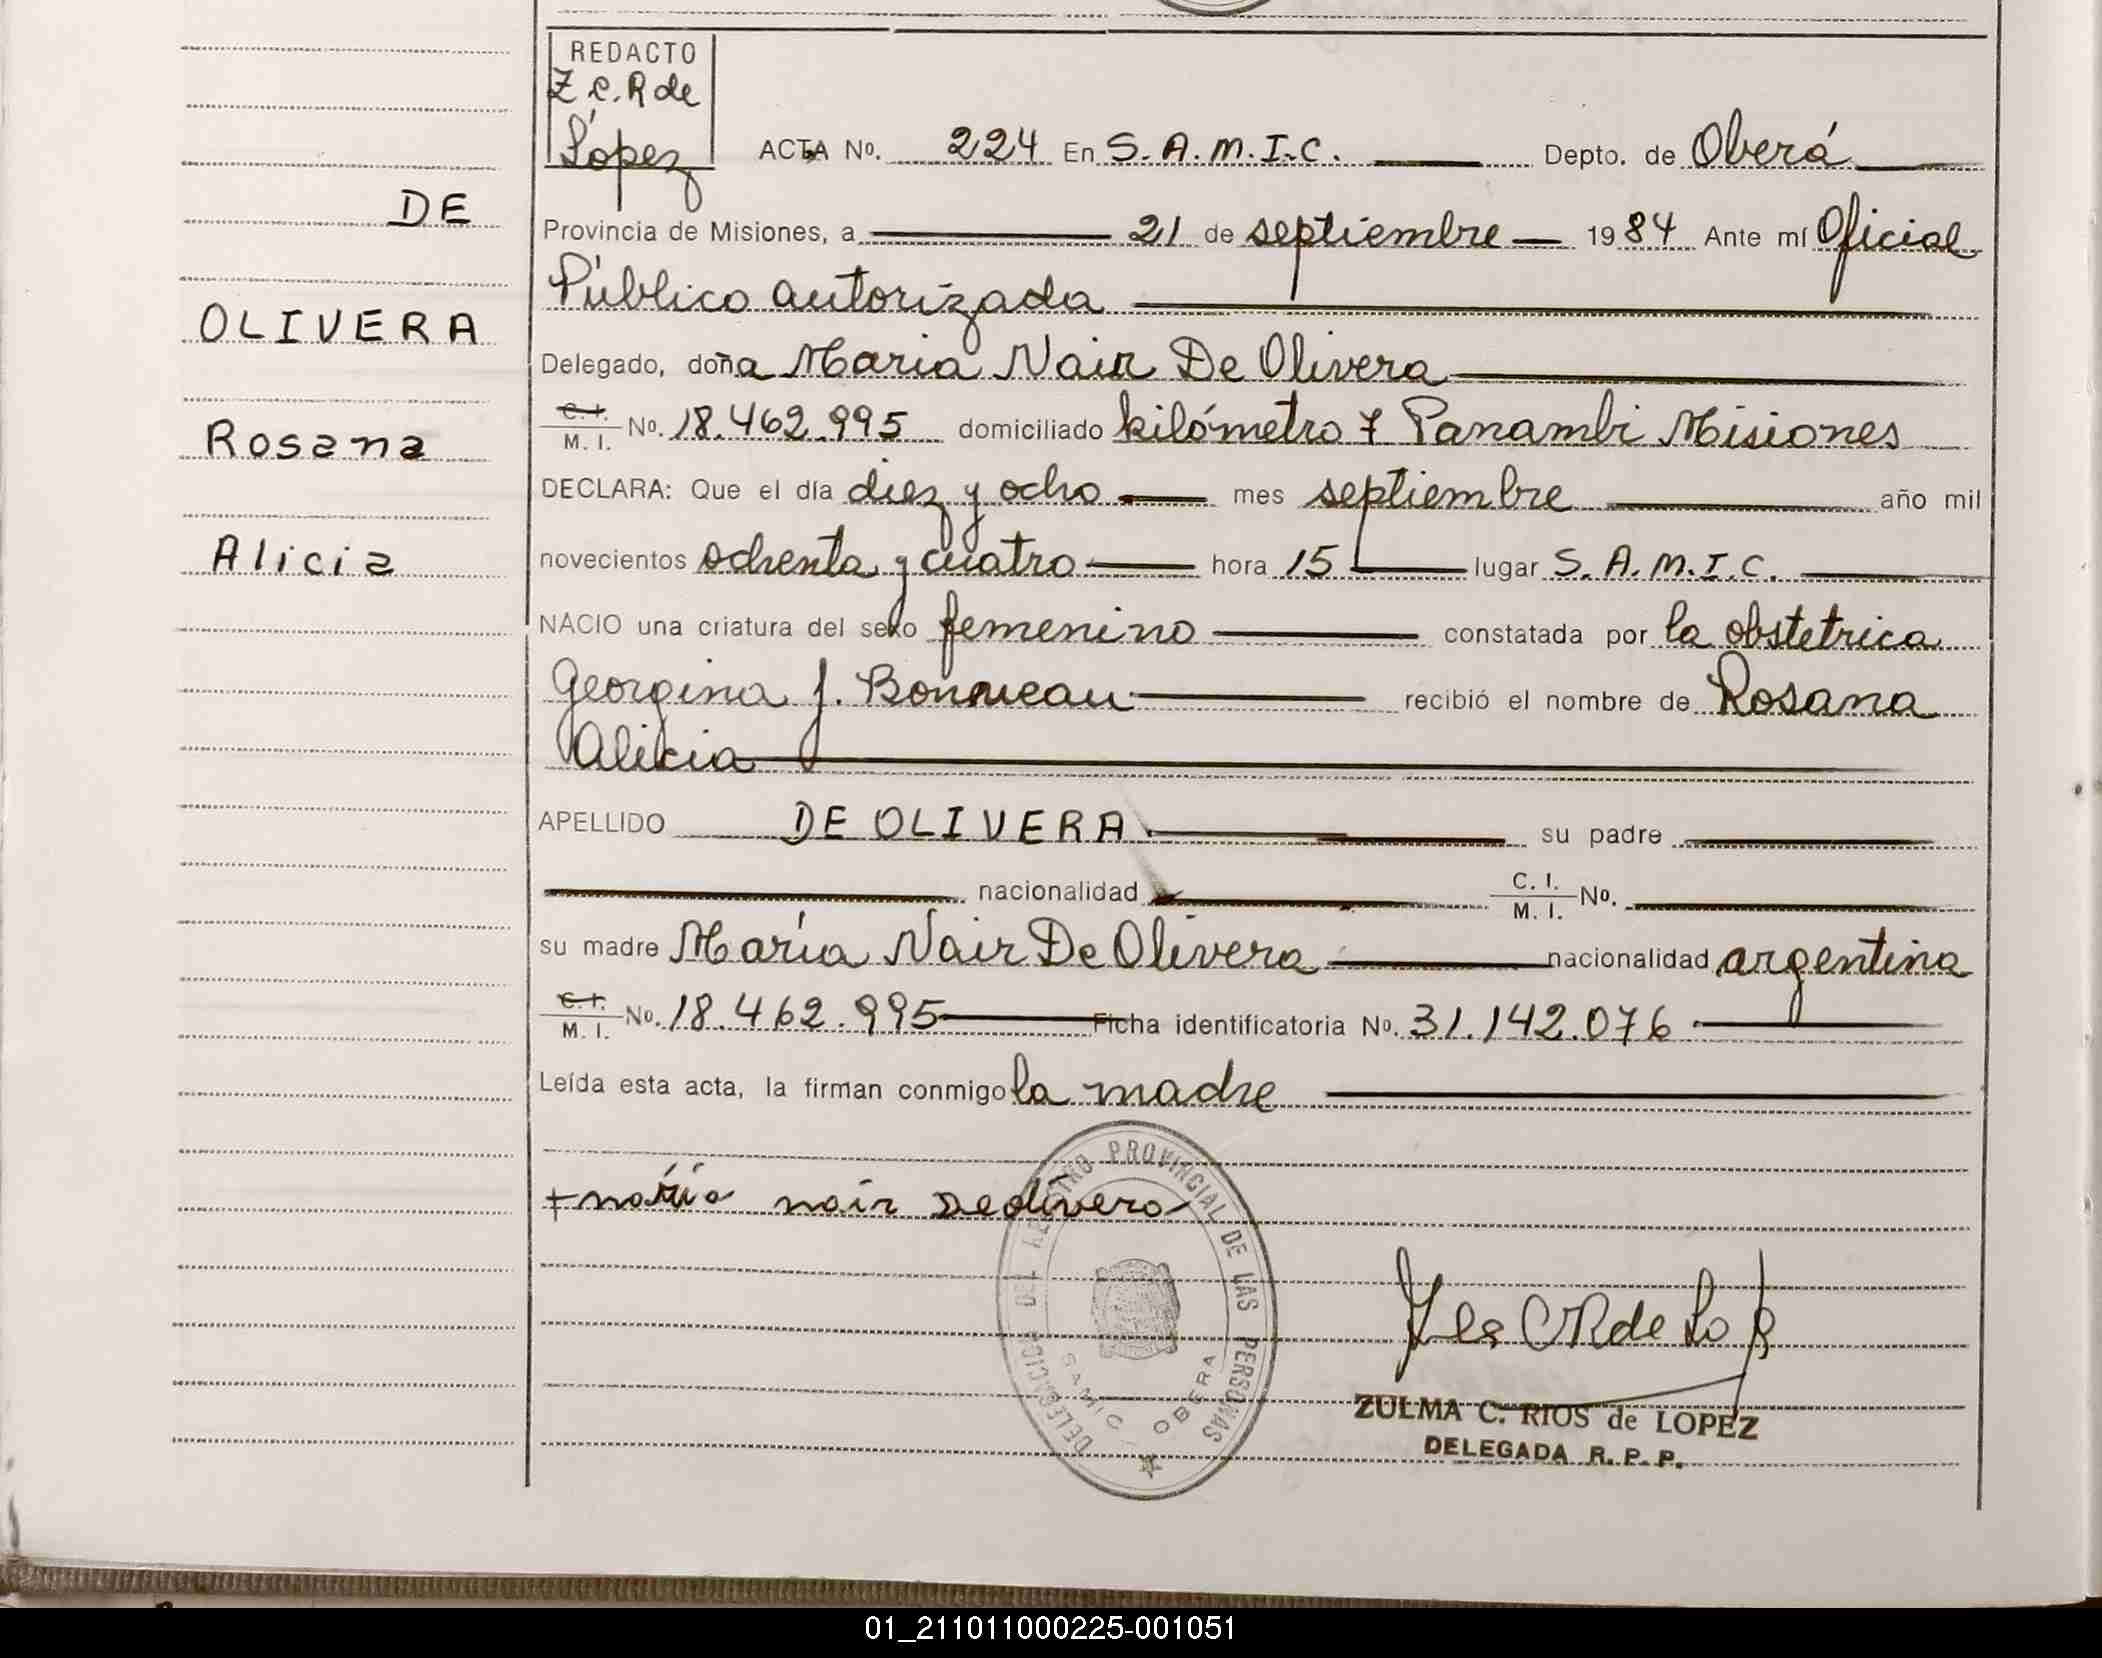 REDACTO
Z C. R de
López
ACTA No. 224 En S. A. M. I. C. Depto. de Oberá
DE
Provincia de Misiones, a 21 de septiembre 1984 Ante mí Oficial
Público autorizada
OLIVERA
Delegado, doña Maria Nair De Olivera
C. I. M. I. No. 18.462.995 domiciliado kilómetro 7 Panambi Misiones
Rosana
DECLARA: Que el día diez y ocho mes septiembre año mil
Alicia
novecientos ochenta y cuatro hora 15 lugar S. A. M. I. C.
NACIO una criatura del sexo femenino constatada por la obstetrica
Georgina J. Bonneau recibió el nombre de Rosana
Alicia
APELLIDO DE OLIVERA su padre
nacionalidad C. I. M. I. No.
su madre María Nair De Olivera nacionalidad argentina
C. I. M. I. No. 18.462.995 Ficha identificatoria No. 31.142.076
Leída esta acta, la firman conmigo la madre
+ maria nair Deolivera
DELEGACION DEL REGISTRO PROVINCIAL DE LAS PERSONAS
SAMIC OBERA
ZULMA C. RIOS de LOPEZ
DELEGADA R. P. P.
01_211011000225-001051